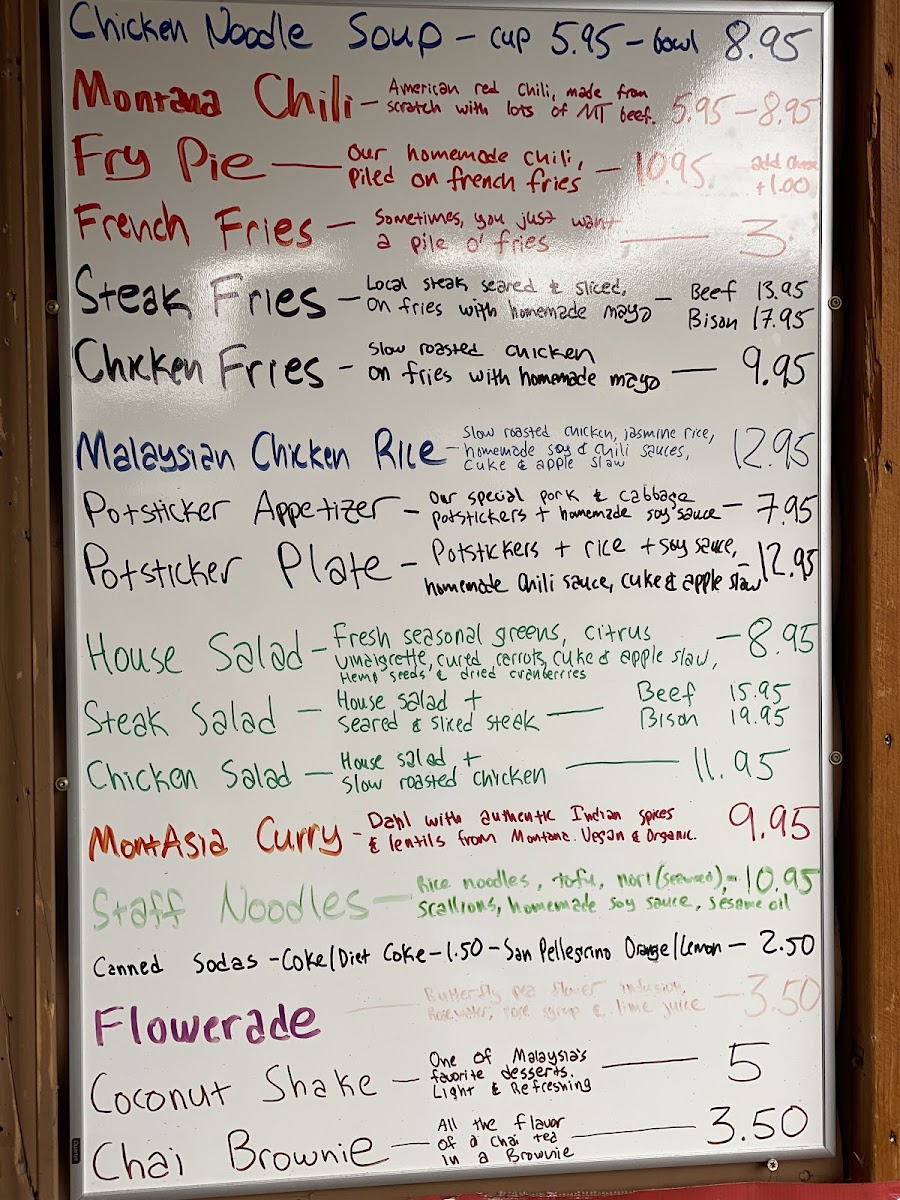 Chicken Noodle Soup - cup 5.95 - bowl 8.95
Montana Chili - American red chili, made from
scratch with lots of MT beef. 5.95 - 8.95
Fry Pie — Our homemade chili,
Piled on french fries - 10.95 add cheese
+1.00
French Fries - Sometimes, you just want
a pile o' fries — 3
Steak Fries - Local steak seared & sliced,
on fries with homemade mayo - Beef 13.95
Bison 17.95
Chicken Fries - Slow roasted chicken
on fries with homemade mayo — 9.95
Malaysian Chicken Rice - Slow roasted chicken, jasmine rice,
homemade soy & chili sauces,
cuke & apple slaw 12.95
Potsticker Appetizer - Our special pork & cabbage
potstickers + homemade soy sauce - 7.95
Potsticker Plate - Potstickers + rice + soy sauce,
homemade chili sauce, cuke & apple slaw - 12.95
House Salad - Fresh seasonal greens, citrus
vinaigrette, cured carrots, cuke & apple slaw,
Hemp seeds & dried cranberries - 8.95
Steak Salad - House salad +
seared & sliced steak — Beef 15.95
Bison 19.95
Chicken Salad - House salad +
Slow roasted chicken — 11.95
MontAsia Curry - Dahl with authentic Indian spices
& lentils from Montana. Vegan & Organic. 9.95
Staff Noodles - Rice noodles, tofu, nori (seaweed), - 10.95
scallions, homemade soy sauce, sesame oil
Canned Sodas - Coke/Diet Coke - 1.50 - San Pellegrino Orange/Lemon - 2.50
Flowerade — Butterfly pea flower infusion,
Rosewater, rose syrup & lime juice - 3.50
Coconut Shake - One of Malaysia's
favorite desserts.
Light & Refreshing — 5
Chai Brownie - All the flavor
of a chai tea
in a Brownie — 3.50